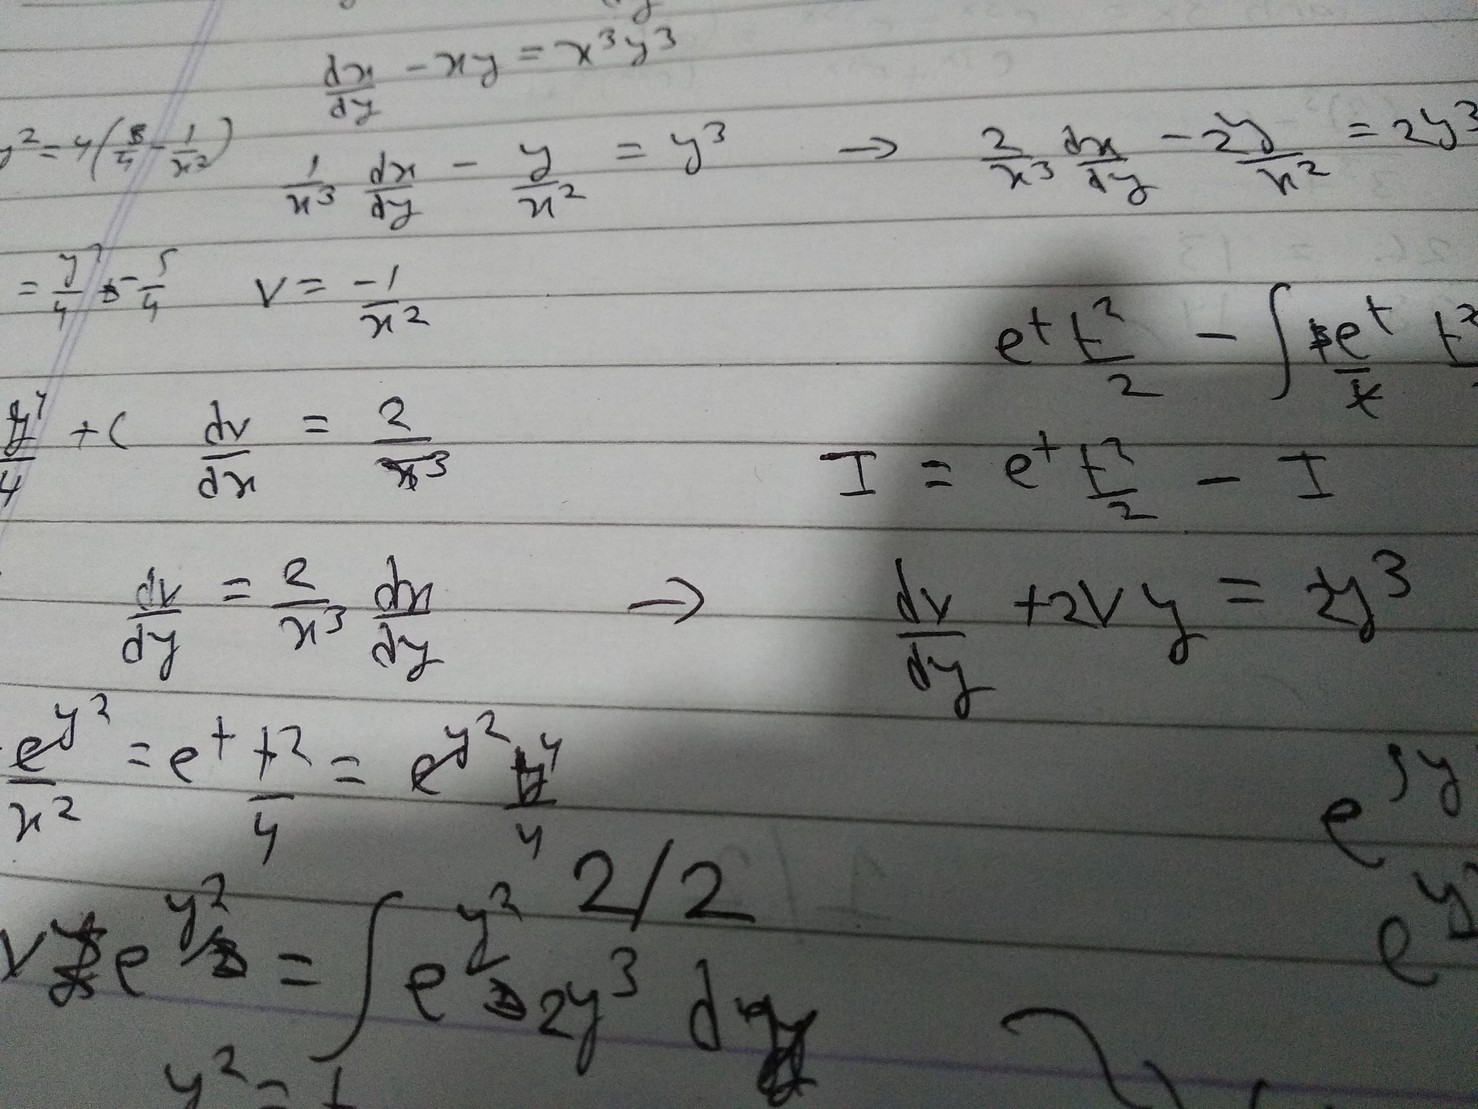 dx/dy - xy = x³y³
y² = 4(5/4 - 1/x²)
1/x³ dx/dy - y/x² = y³ → 2/x³ dx/dy - 2y/x² = 2y³
= y⁴/4 - 5/4
v = -1/x²
e^t t²/2 - ∫ e^t t²
y⁴/4 + c
dv/dx = 2/x³
I = e^t t²/2 - I
dv/dy = 2/x³ dx/dy → dv/dy + 2vy = 2y³
e^y²/x² = e^t t²/4 = e^y² y⁴/4
e^∫y
2/2
v e^y² = ∫ e^y² 2y³ dy
e^y²
y² = t